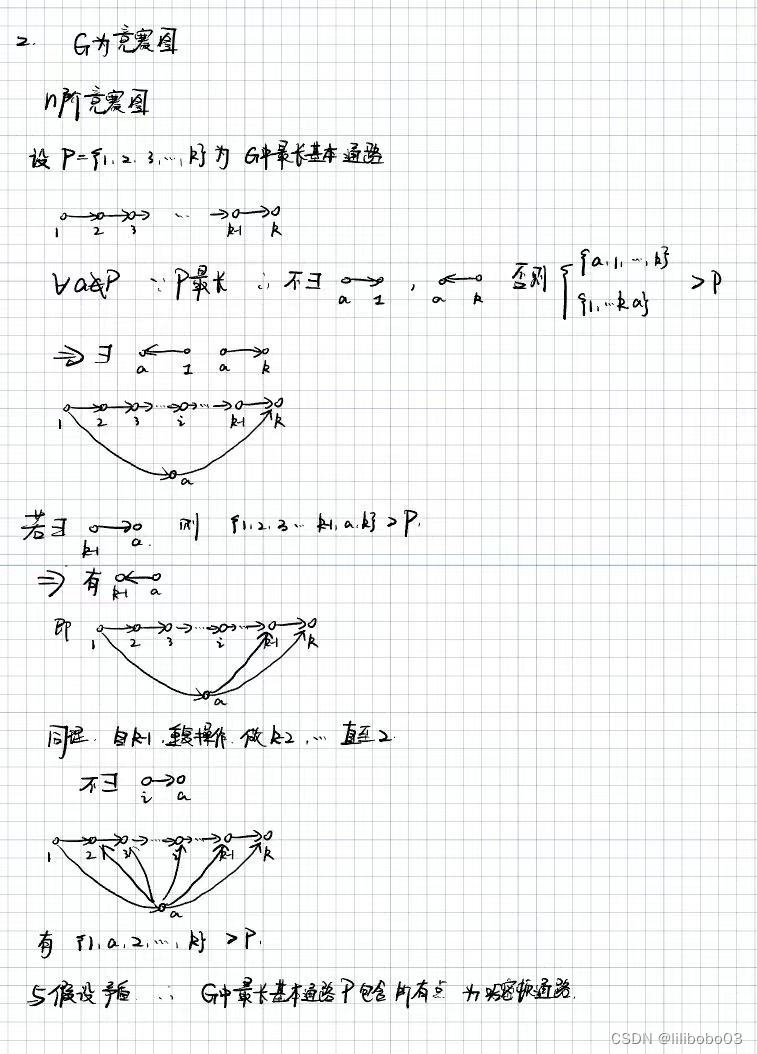 2. G为竞赛图
n阶竞赛图
设 P={1, 2, 3, ..., k} 为 G中最长基本通路
1 2 3 ... k-1 k
∀a∉P ∵ P最长 ∴ 不∃ a 1 , a k 否则 { {a, 1, ..., k} {1, ... k, a} > P
⇒ ∃ a 1 a k
1 2 3 ... i ... k-1 k
a
若∃ k-1 a. 则 {1, 2, 3 ... k-1, a, k} > P.
⇒ 有 k-1 a
即 1 2 3 ... i ... k-1 k
a
同理. 自k-1, 重复操作. 做 k-2, ... 直至2.
不∃ i a
1 2 3 ... i ... k-1 k
a
有 {1, a, 2, ..., k} > P.
与假设矛盾 ∴ G中最长基本通路P包含所有点 为哈密顿通路.
CSDN @lilibobo03